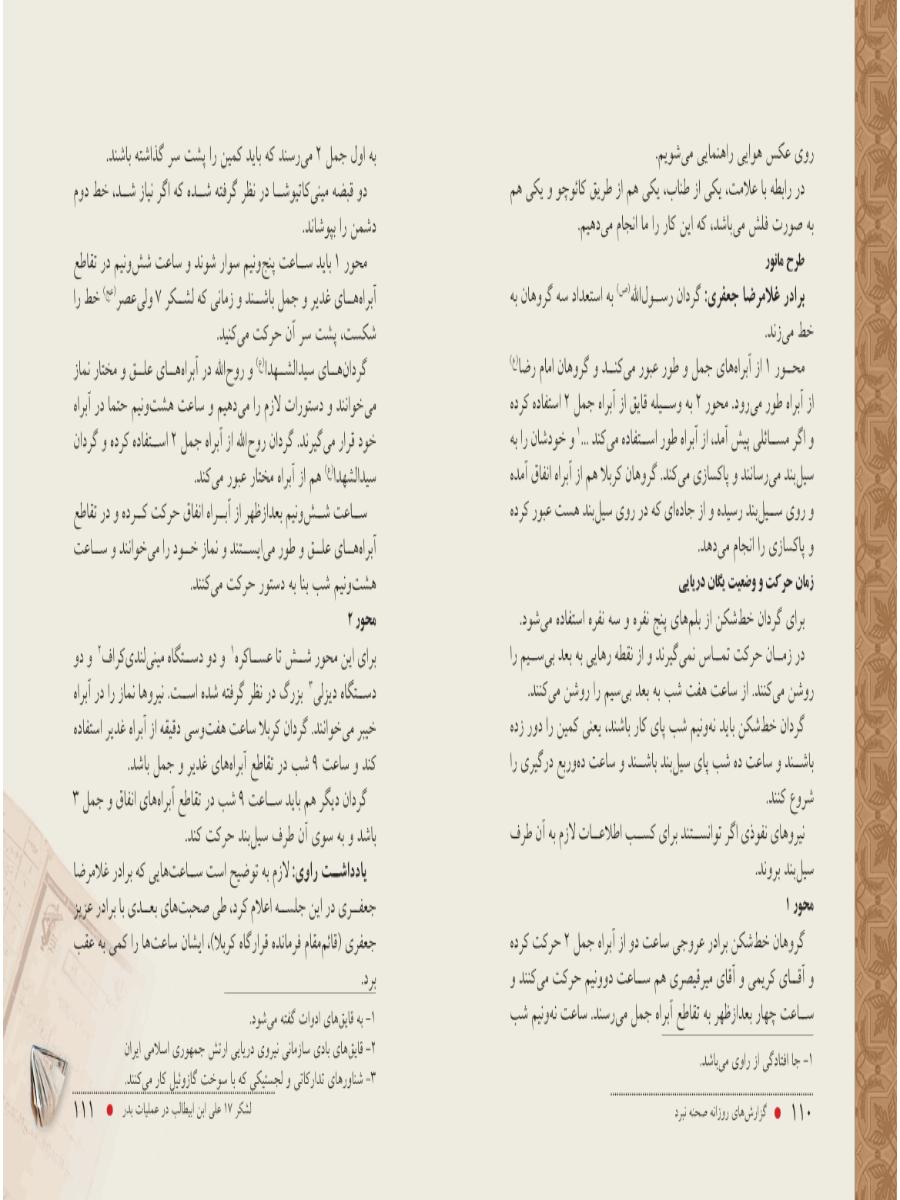 روی عکس هوایی راهنمایی می‌شویم.
در رابطه با علامت، یکی از طناب، یکی هم از طریق کائوچو و یکی هم
به صورت فلش می‌باشد، که این کار را ما انجام می‌دهیم.
طرح مانور
برادر غلامرضا جعفری: گردان رسول‌الله(ص) به استعداد سه گروهان به
خط می‌زند.
محور ۱ از آبراه‌های جمل و طور عبور می‌کند و گروهان امام رضا(ع)
از آبراه طور می‌رود. محور ۲ به وسیله قایق از آبراه جمل ۲ استفاده کرده
و اگر مسائلی پیش آمد، از آبراه طور استفاده می‌کند ...۱ و خودشان را به
سیل‌بند می‌رسانند و پاکسازی می‌کند. گروهان کربلا هم از آبراه انفاق آمده
و روی سیل‌بند رسیده و از جاده‌ای که در روی سیل‌بند هست عبور کرده
و پاکسازی را انجام می‌دهد.
زمان حرکت و وضعیت یگان دریایی
برای گردان خط‌شکن از بلم‌های پنج نفره و سه نفره استفاده می‌شود.
در زمان حرکت تماس نمی‌گیرند و از نقطه رهایی به بعد بی‌سیم را
روشن می‌کنند. از ساعت هفت شب به بعد بی‌سیم را روشن می‌کنند.
گردان خط‌شکن باید نه‌ونیم شب پای کار باشند، یعنی کمین را دور زده
باشند و ساعت ده شب پای سیل‌بند باشند و ساعت ده‌وربع درگیری را
شروع کنند.
نیروهای نفوذی اگر توانستند برای کسب اطلاعات لازم به آن طرف
سیل‌بند بروند.
محور ۱
گروهان خط‌شکن برادر عروجی ساعت دو از آبراه جمل ۲ حرکت کرده
و آقای کریمی و آقای میرقیصری هم ساعت دوونیم حرکت می‌کنند و
ساعت چهار بعدازظهر به تقاطع آبراه جمل می‌رسند. ساعت نه‌ونیم شب
۱- جا افتادگی از راوی می‌باشد.
۱۱۰ ● گزارش‌های روزانه صحنه نبرد
به اول جمل ۲ می‌رسند که باید کمین را پشت سر گذاشته باشند.
دو قبضه مینی‌کاتیوشا در نظر گرفته شده که اگر نیاز شد، خط دوم
دشمن را بپوشاند.
محور ۱ باید ساعت پنج‌ونیم سوار شوند و ساعت شش‌ونیم در تقاطع
آبراه‌های غدیر و جمل باشند و زمانی که لشکر ۷ ولی‌عصر(عج) خط را
شکست، پشت سر آن حرکت می‌کنید.
گردان‌های سیدالشهدا(ع) و روح‌الله در آبراه‌های علق و مختار نماز
می‌خوانند و دستورات لازم را می‌دهیم و ساعت هشت‌ونیم حتما در آبراه
خود قرار می‌گیرند. گردان روح‌الله از آبراه جمل ۲ استفاده کرده و گردان
سیدالشهدا(ع) هم از آبراه مختار عبور می‌کند.
ساعت شش‌ونیم بعدازظهر از آبراه انفاق حرکت کرده و در تقاطع
آبراه‌های علق و طور می‌ایستند و نماز خود را می‌خوانند و ساعت
هشت‌ونیم شب بنا به دستور حرکت می‌کنند.
محور ۲
برای این محور شش تا عساکره۱ و دو دستگاه مینی‌لندی‌کراف۲ و دو
دستگاه دیزلی۳ بزرگ در نظر گرفته شده است. نیروها نماز را در آبراه
خیبر می‌خوانند. گردان کربلا ساعت هفت‌وسی دقیقه از آبراه غدیر استفاده
کند و ساعت ۹ شب در تقاطع آبراه‌های غدیر و جمل باشد.
گردان دیگر هم باید ساعت ۹ شب در تقاطع آبراه‌های انفاق و جمل ۳
باشد و به سوی آن طرف سیل‌بند حرکت کند.
یادداشت راوی: لازم به توضیح است ساعت‌هایی که برادر غلامرضا
جعفری در این جلسه اعلام کرد، طی صحبت‌های بعدی با برادر عزیز
جعفری (قائم‌مقام فرمانده قرارگاه کربلا)، ایشان ساعت‌ها را کمی به عقب
برد.
۱- به قایق‌های ادوات گفته می‌شود.
۲- قایق‌های بادی سازمانی نیروی دریایی ارتش جمهوری اسلامی ایران
۳- شناورهای تدارکاتی و لجستیکی که با سوخت گازوئیل کار می‌کنند.
لشکر ۱۷ علی ابن ابیطالب در عملیات بدر ● ۱۱۱